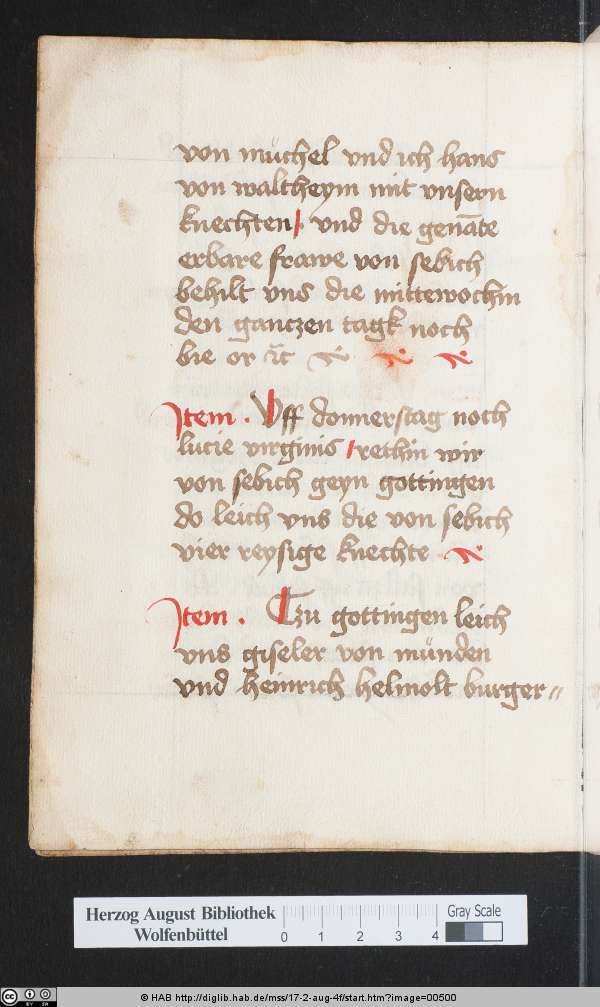 von müchel vnd ich hans
von waltheym mit vnsern
knechten / vnd die genāte
erbare frawe von sebich
behilt vns die mittewochin
den ganczen tagk noch
bie or
Item . Vff donnerstag noch
lucie virginis / rethin wir
von sebich geyn gottingen
do leich vns die von sebich
vier reysige knechte
Item . Czu gottingen leich
vns giseler von münden
vnd heinrich helmolt burger〃
Herzog August Bibliothek
Wolfenbüttel
0 1 2 3 4
Gray Scale
© HAB http://diglib.hab.de/mss/17-2-aug-4f/start.htm?image=00500